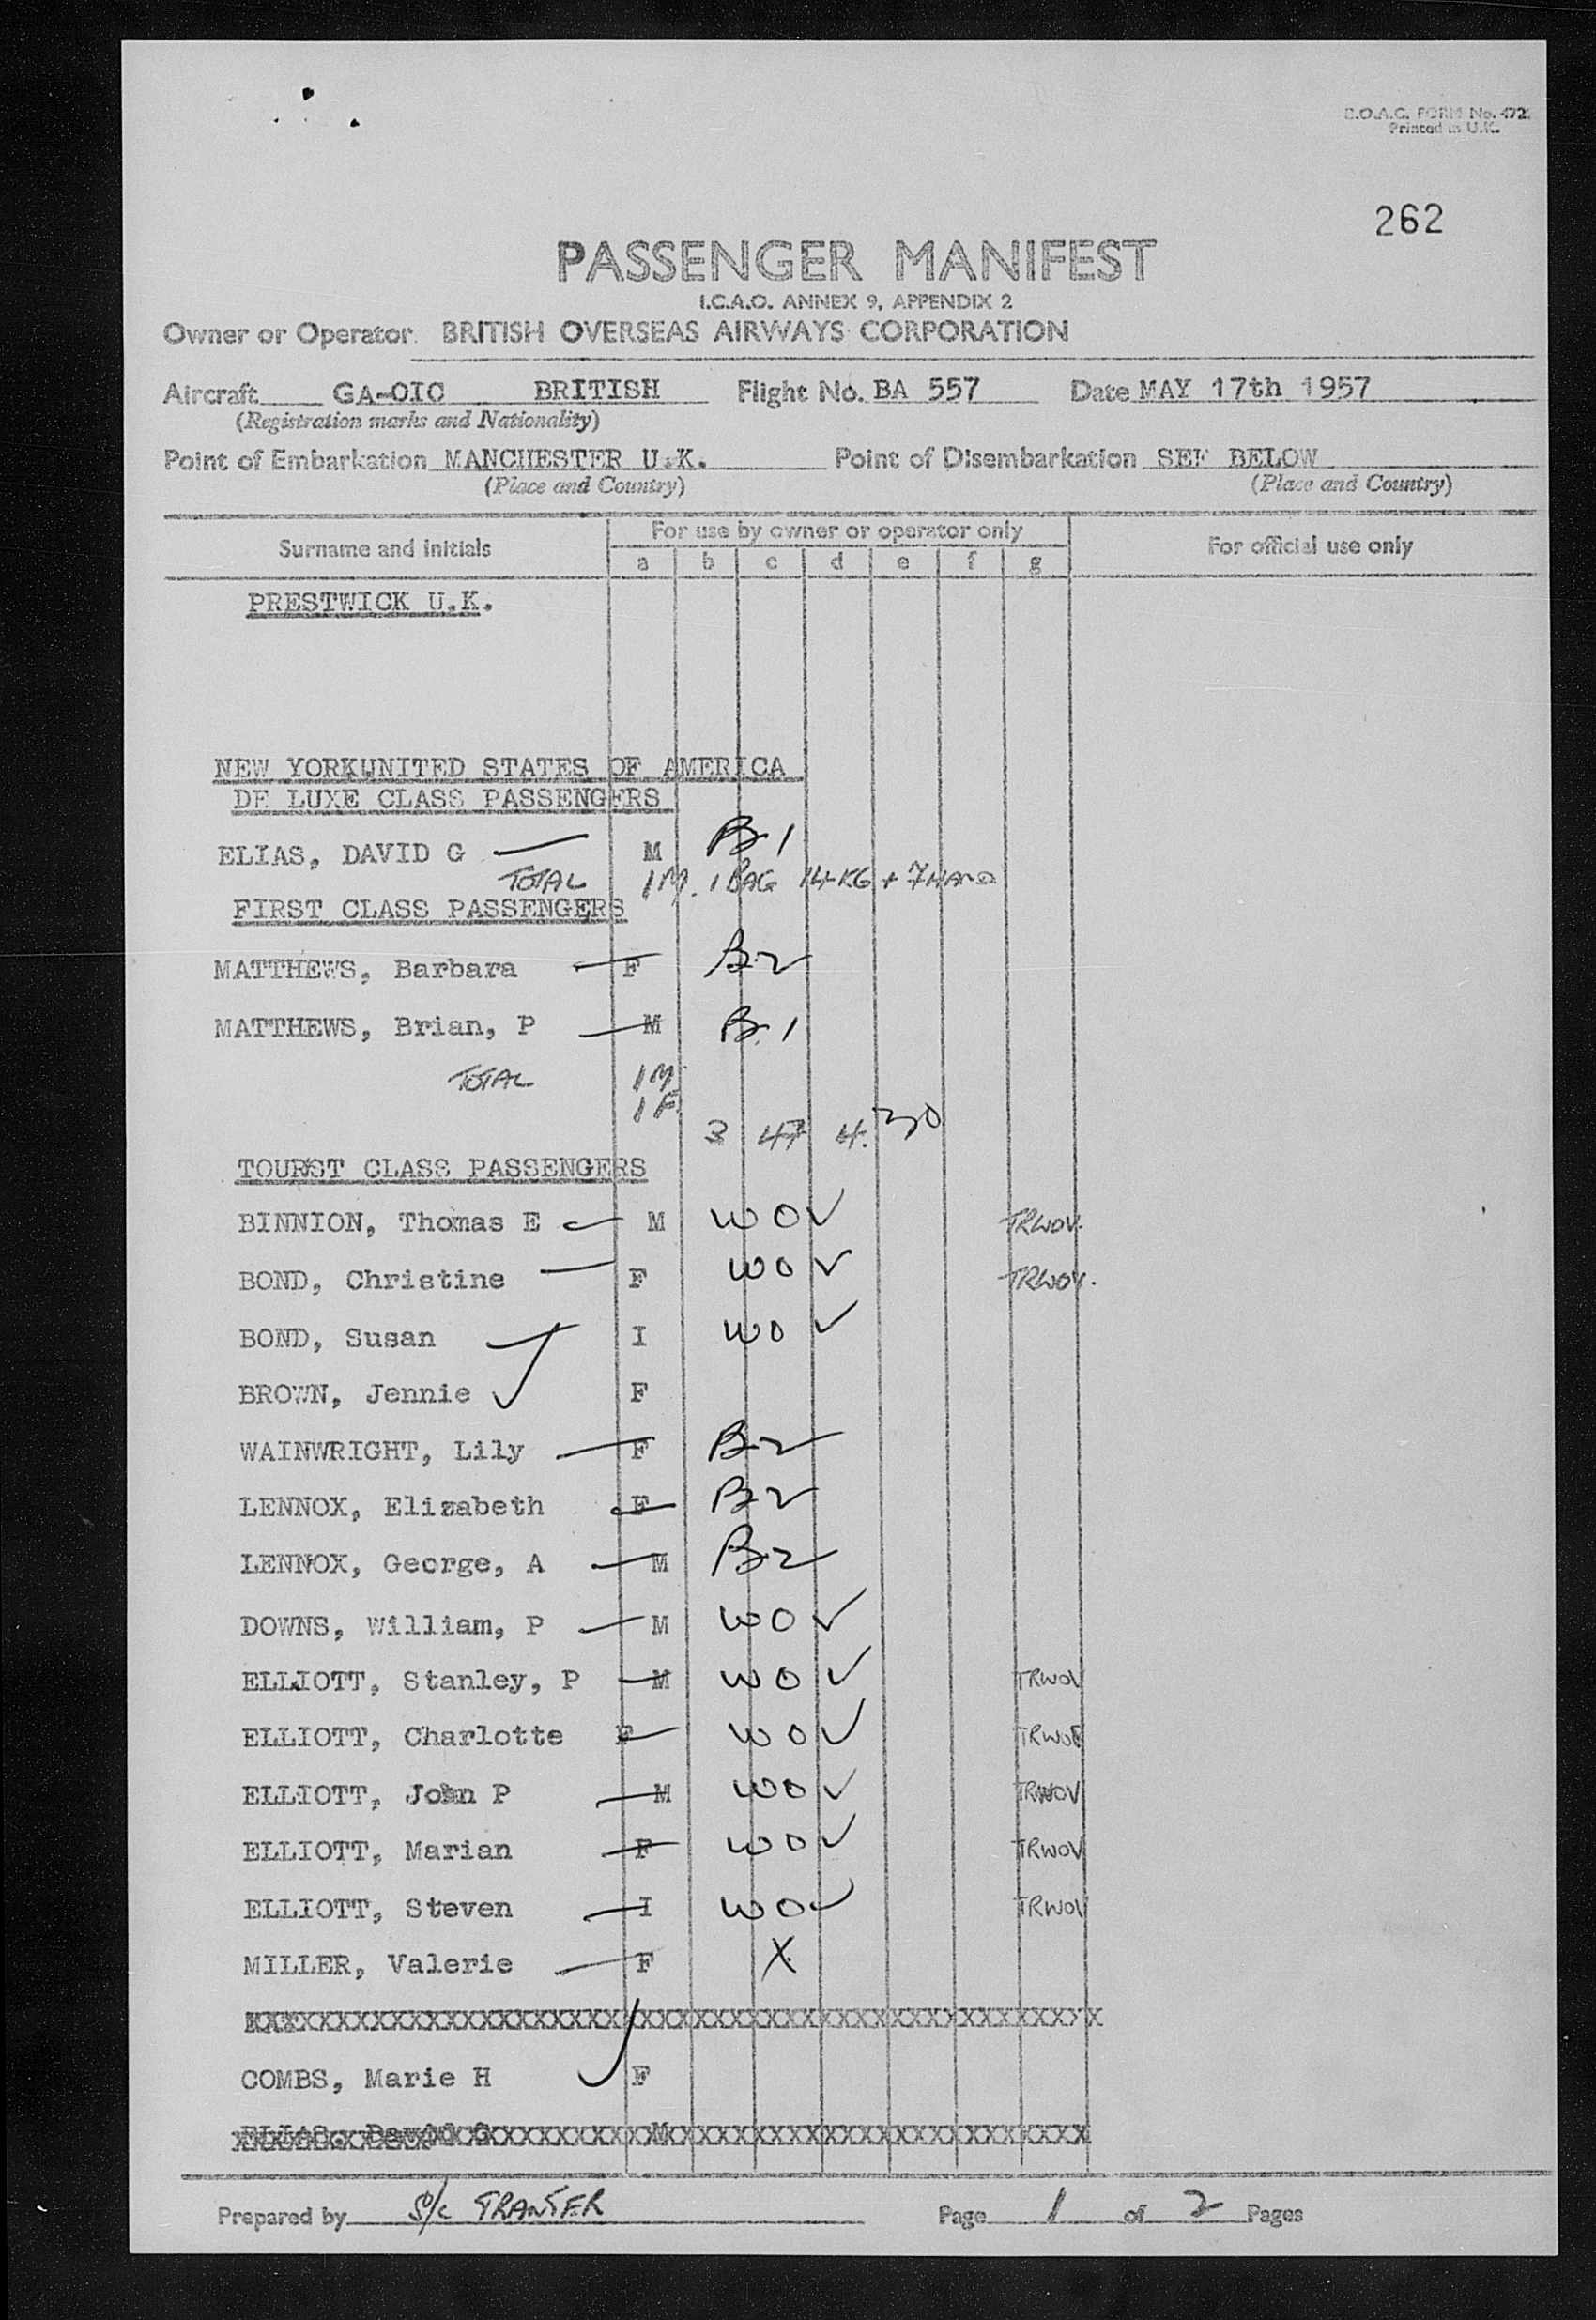 B.O.A.C. FORM No. 472
Printed in U.K.
262
PASSENGER MANIFEST
I.C.A.O. ANNEX 9, APPENDIX 2
Owner or Operator. BRITISH OVERSEAS AIRWAYS CORPORATION
Aircraft GA-OIC BRITISH Flight No. BA 557 Date MAY 17th 1957
(Registration marks and Nationality)
Point of Embarkation MANCHESTER U.K. Point of Disembarkation SEE BELOW
(Place and Country) (Place and Country)
Surname and initials For use by owner or operator only For official use only
a b c d e f g
PRESTWICK U.K.
NEW YORKUNITED STATES OF AMERICA
DE LUXE CLASS PASSENGERS
ELIAS, DAVID G M B1
TOTAL 1M. 1 BAG 14 KG + 7 HAND
FIRST CLASS PASSENGERS
MATTHEWS, Barbara F B2
MATTHEWS, Brian, P M B1
TOTAL 1M
1F
3 47 4. 30
TOURST CLASS PASSENGERS
BINNION, Thomas E M WO✓ TRWOV.
BOND, Christine F WO✓ TRWOV.
BOND, Susan I WO✓
BROWN, Jennie F
WAINWRIGHT, Lily F B2
LENNOX, Elizabeth F B2
LENNOX, George, A M B2
DOWNS, William, P M WO✓
ELLIOTT, Stanley, P M WO✓ TRWOV
ELLIOTT, Charlotte F WO✓ TRWOV
ELLIOTT, John P M WO✓ TRWOV
ELLIOTT, Marian F WO✓ TRWOV
ELLIOTT, Steven I WO✓ TRWOV
MILLER, Valerie F X
COMBS, Marie H F
ELIAS, David G M
Prepared by S/C TRANTER Page 1 of 2 Pages